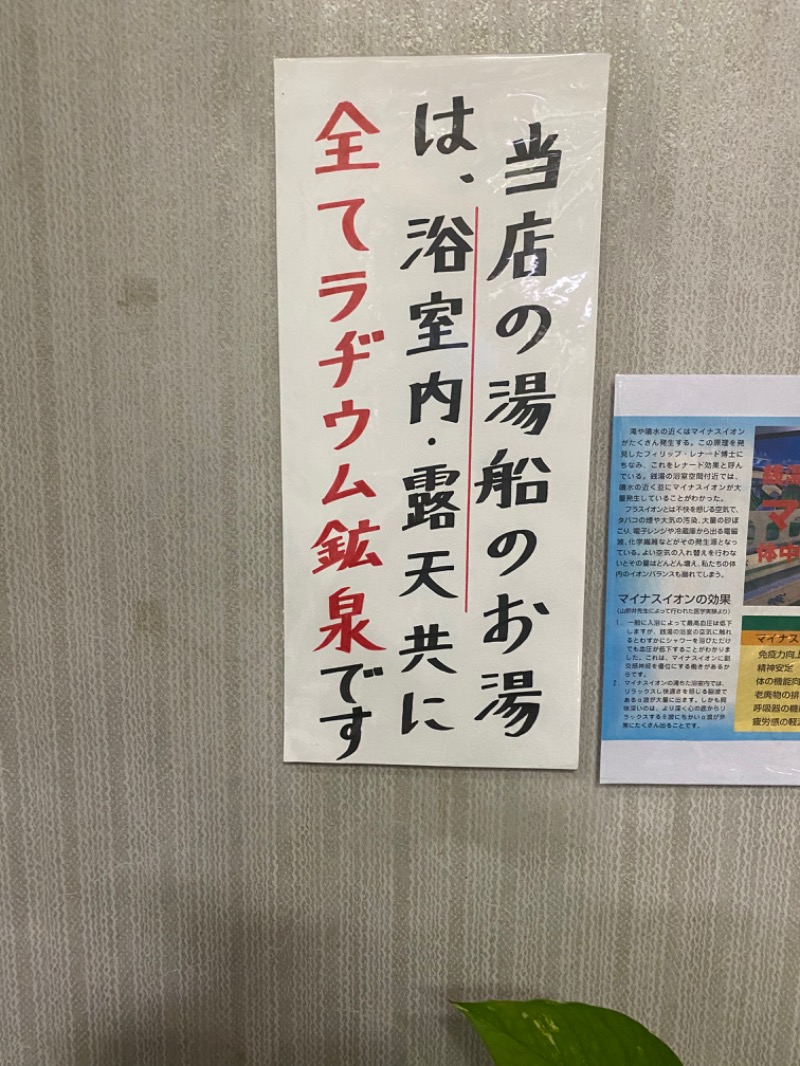 当店の湯船のお湯
は、浴室内・露天共に
全てラヂウム鉱泉です
滝や噴水の近くはマイナスイオン
がたくさん発生する。この原理を発
見したフィリップ・レナード博士に
ちなみ、これをレナード効果と呼ん
でいる。銭湯の浴室空間付近では、
噴水の近く並にマイナスイオンが大
量発生していることがわかった。
プラスイオンとは不快を感じる空気で、
タバコの煙や大気の汚染、大量の砂ぼ
こり、電子レンジや冷蔵庫から出る電磁
波、化学繊維などがその発生源となっ
ている。よい空気の入れ替えを行わな
いとその量はどんどん増え、私たちの体
内のイオンバランスも崩れてしまう。
マイナスイオンの効果
1. 一般に入浴によって最高血圧は低下
しますが、銭湯の浴室の空気に触れ
るとわずかにシャワーを浴びただけ
でも血圧が低下することがわかりま
した。これは、マイナスイオンに副
交感神経を優位にする働きがあるか
らです。
2. マイナスイオンの満ちた浴室内では、
リラックスし快適さを感じる脳波で
あるα波が大量に出ます。しかも興
味深いのは、より深く心の底からリ
ラックスするθ波にちかいα波が非
常にたくさん出ることです。
銭湯
マ
体中
マイナス
免疫力向上
精神安定
体の機能向
老廃物の排
呼吸器の機
疲労感の軽